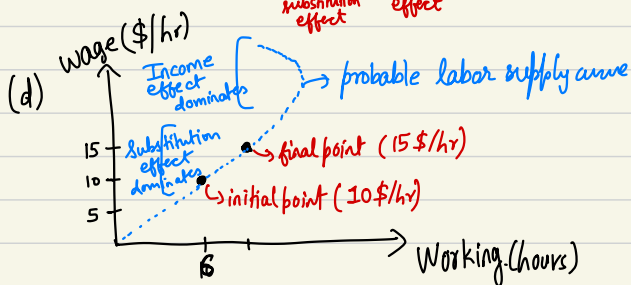 substitution effect
effect
wage ($/hr)
(d)
Income
effect
dominates
probable labor supply curve
15
substitution
effect
dominates
final point (15$/hr)
10
initial point (10$/hr)
5
6
Working (hours)